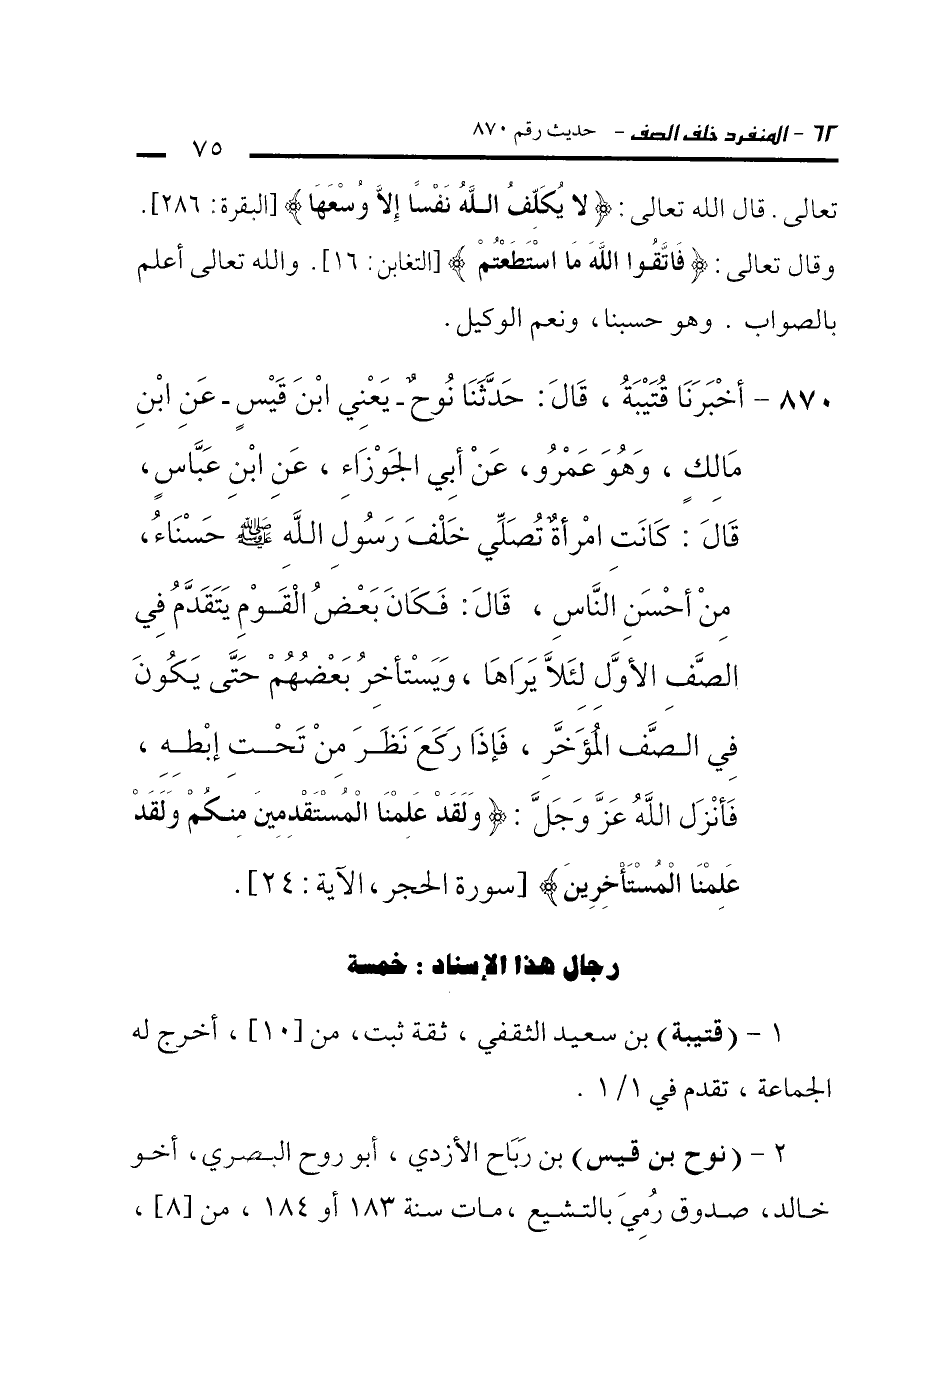 ٦٢ - المنفرد خلف الصف - حديث رقم ٨٧٠
٧٥
تعالى . قال الله تعالى : ﴿ لا يُكَلِّفُ اللَّهُ نَفْسًا إِلاَّ وُسْعَهَا ﴾ [البقرة: ٢٨٦].
وقال تعالى : ﴿ فَاتَّقُوا اللَّهَ مَا اسْتَطَعْتُمْ ﴾ [التغابن: ١٦]. والله تعالى أعلم
بالصواب . وهو حسبنا، ونعم الوكيل.
٨٧٠ - أخْبَرَنَا قُتَيْبَةُ ، قَالَ: حَدَّثَنَا نُوحٌ - يَعْنِي ابْنَ قَيْسٍ - عَنِ ابْنِ
مَالِكٍ ، وَهُوَ عَمْرُو، عَنْ أبِي الجَوْزَاءِ ، عَنِ ابْنِ عَبَّاسٍ،
قَالَ : كَانَتِ امْرأةٌ تُصَلِّي خَلْفَ رَسُولِ اللَّهِ ﷺ حَسْنَاءُ،
مِنْ أحْسَنِ النَّاسِ ، قَالَ: فَكَانَ بَعْضُ الْقَوْمِ يَتَقَدَّمُ فِي
الصَّفِّ الأوَّلِ لِئَلاَّ يَرَاهَا ، وَيَسْتأخِرُ بَعْضُهُمْ حَتَّى يَكُونَ
فِي الصَّفِّ المُؤَخَّرِ ، فَإذَا رَكَعَ نَظَرَ مِنْ تَحْتِ إبْطِهِ ،
فَأنْزَلَ اللَّهُ عَزَّ وَجَلَّ : ﴿ وَلَقَدْ عَلِمْنَا الْمُسْتَقْدِمِينَ مِنكُمْ وَلَقَدْ
عَلِمْنَا الْمُسْتَأْخِرِينَ ﴾ [سورة الحجر ، الآية : ٢٤].
رجال هذا الإسناد : خمسة
١ - (قتيبة) بن سعيد الثقفي ، ثقة ثبت، من [١٠] ، أخرج له
الجماعة ، تقدم في ١/١ .
٢ - (نوح بن قيس) بن رَبَاح الأزدي ، أبو روح البصري، أخو
خالد، صدوق رُمِيَ بالتشيع ، مات سنة ١٨٣ أو ١٨٤ ، من [٨] ،